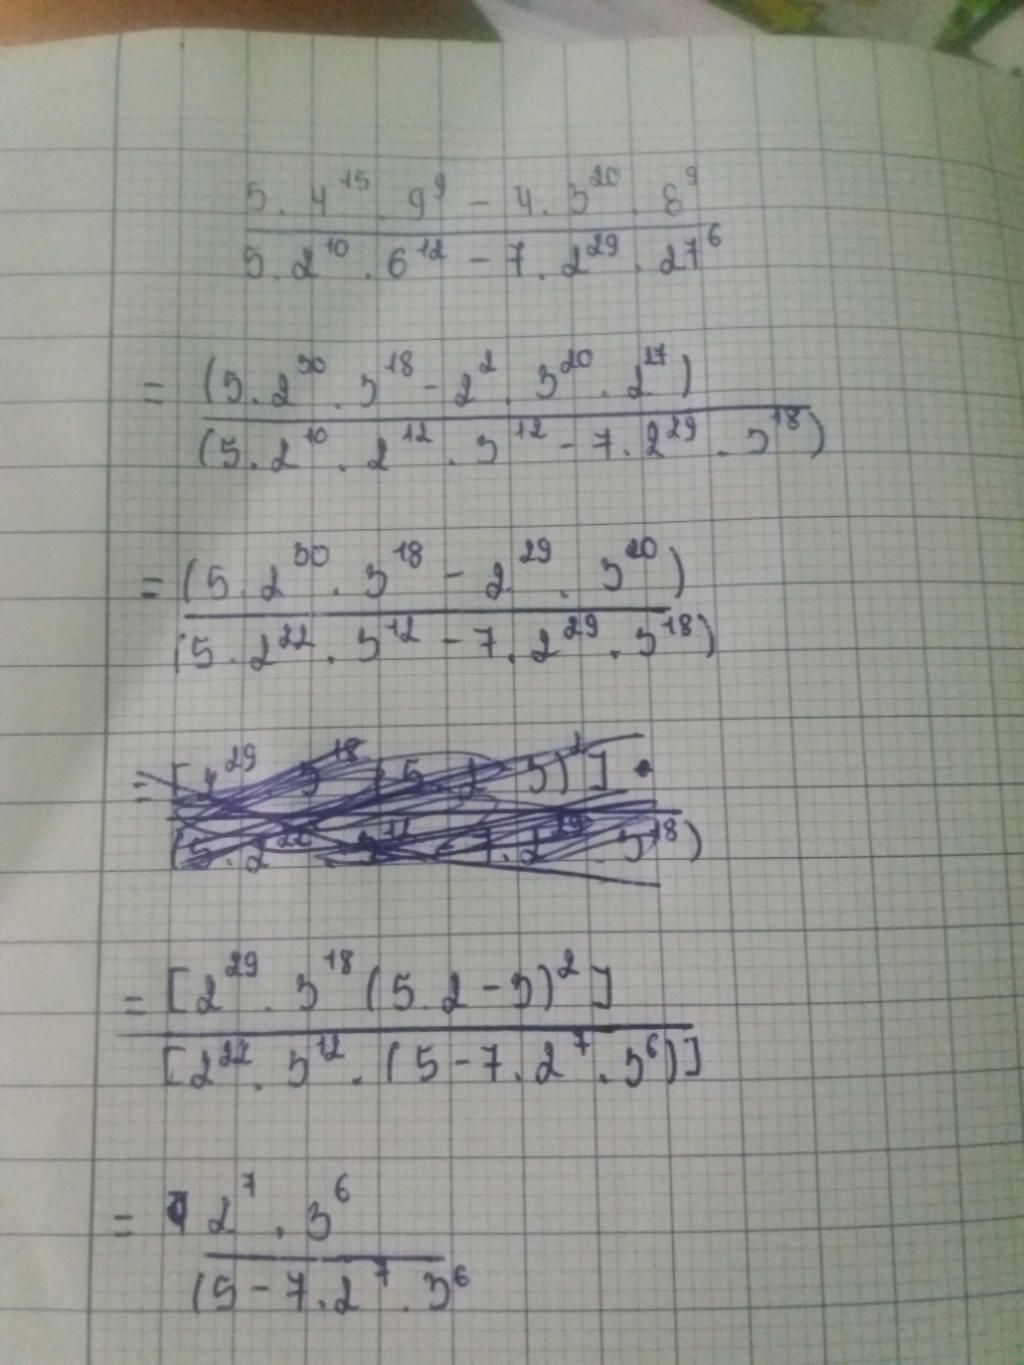 5 . 4^15 . 9^9 - 4 . 3^20 . 8^9
5 . 2^10 . 6^12 - 7 . 2^29 . 27^6
= (5 . 2^30 . 3^18 - 2^2 . 3^20 . 2^27)
(5 . 2^10 . 2^12 . 3^12 - 7 . 2^29 . 3^18)
= (5 . 2^30 . 3^18 - 2^29 . 3^20)
(5 . 2^22 . 3^12 - 7 . 2^29 . 3^18)
= [2^29 . 3^18 (5 . 2 - 3)^2]
[2^22 . 3^12 . (5 - 7 . 2^7 . 3^6)]
= 2^7 . 3^6
(5 - 7 . 2^7 . 3^6